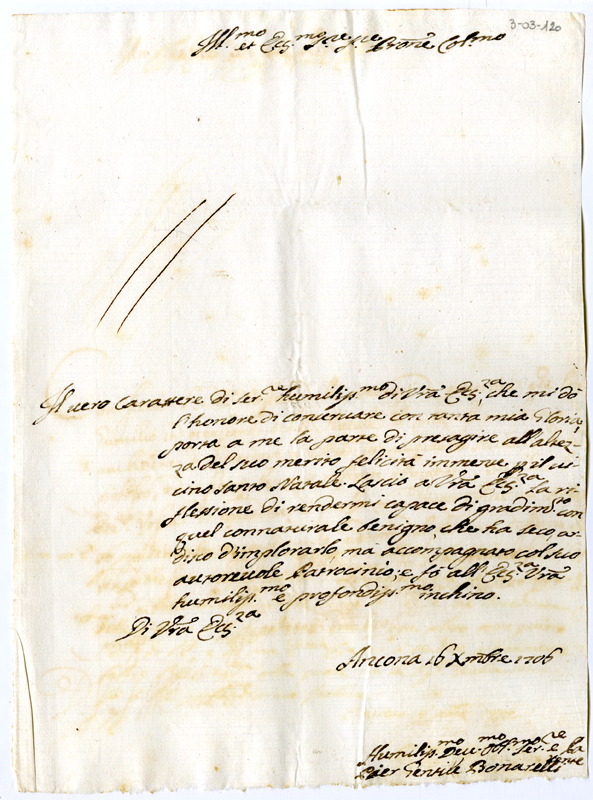 3-03-120
Ill.mo et Ecc.mo Sig.re Sig.re Pron̄e Col.mo
Il vero Carattere di Ser.re humiliss.mo di Vr̄a Ecc.za, che mi dò
l'honore di conservare con tanta mia Gloria
porta a me la parte di presagire all'altez-
za del suo merito felicità immense p il vi-
cino Santo Natale. Lascio a Vr̄a Ecc.za la ri-
flessione di rendermi capace di gradim.to con
quel connaturale benigno, che ha seco, ar-
disco d'implorarlo, mà accompagnato col suo
autorevole Patrocinio; e fò all'Ecc.za Vr̄a
humiliss.mo e profondiss.mo inchino.
Di Vr̄a Ecc.za
Ancona 16 Xmbre 1706
Humiliss.mo Deu.mo Obl.mo Ser.re e
Pier Gentile Bonarelli